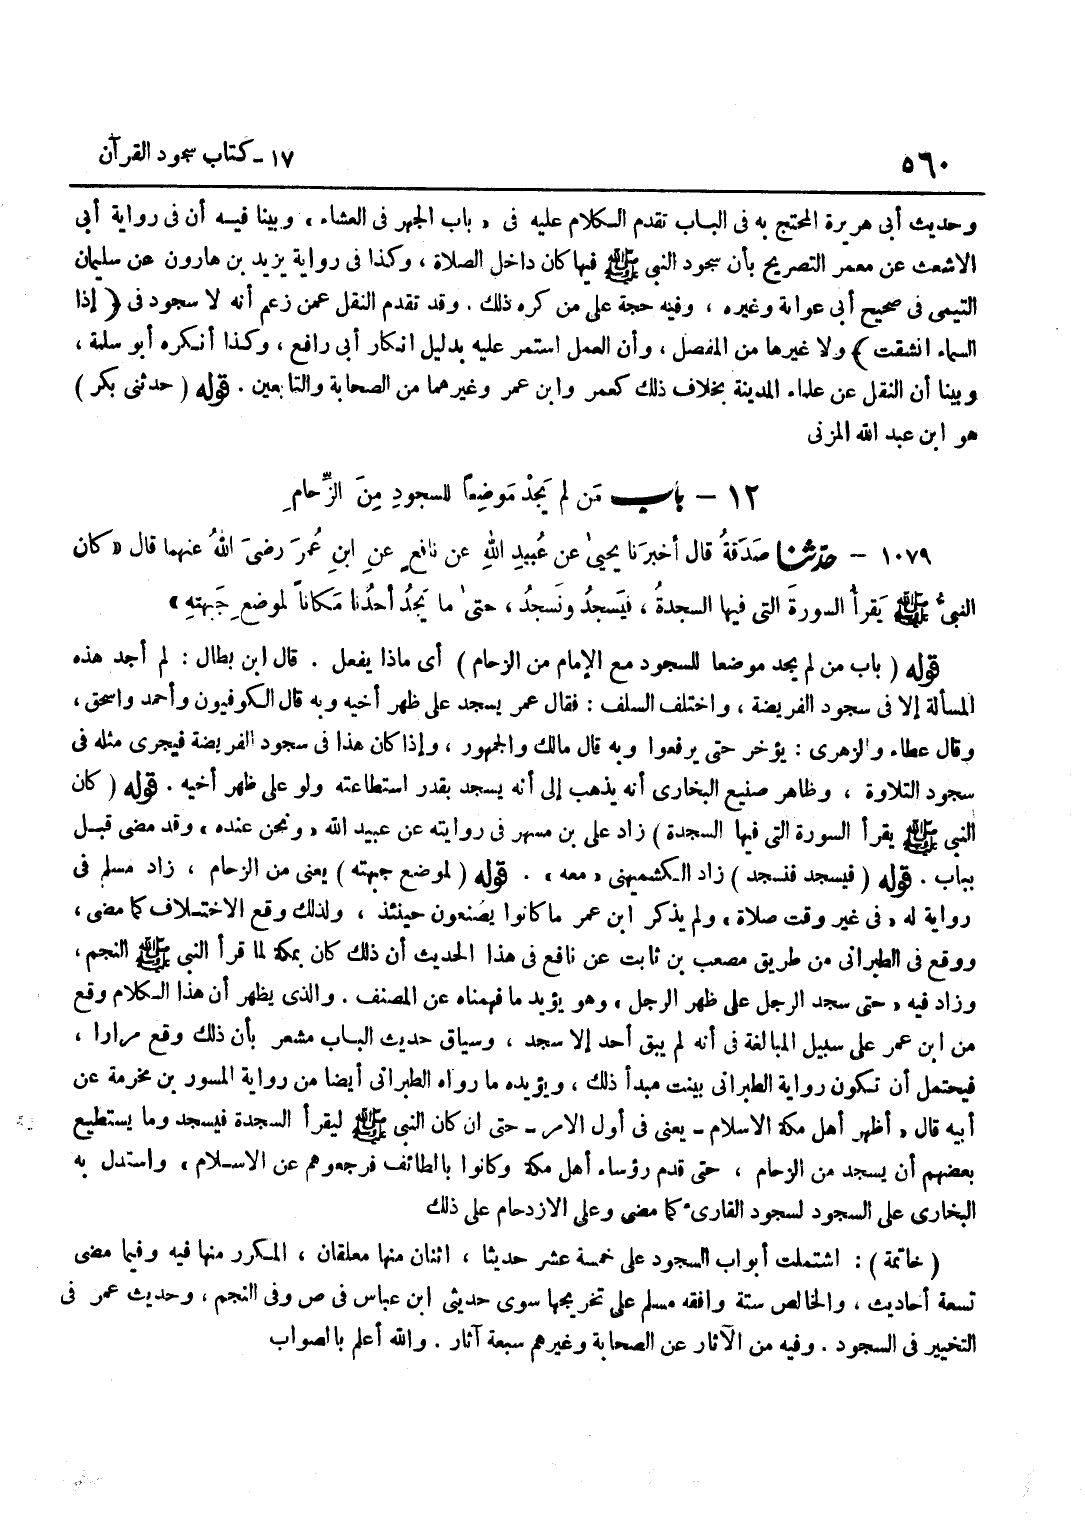 ٥٦٠
١٧ - كتاب سجود القرآن
وحديث أبى هريرة المحتج به فى الباب تقدم الكلام عليه فى « باب الجهر فى العشاء » وبينا فيه أن فى رواية أبى
الاشعث عن معمر التصريح بأن سجود النبى ﷺ فيها كان داخل الصلاة ، وكذا فى رواية يزيد بن هارون عن سليمان
التيمى فى صحيح أبى عوانة وغيره ، وفيه حجة على من كره ذلك . وقد تقدم النقل عمن زعم أنه لا سجود فى ﴿ إذا
السماء انشقت ﴾ ولا غيرها من المفصل ، وأن العمل استمر عليه بدليل انكار أبى رافع ، وكذا أنكره أبو سلمة ،
وبينا أن النقل عن علماء المدينة بخلاف ذلك كعمر وابن عمر وغيرهما من الصحابة والتابعين . قوله ( حدثنى بكر )
هو ابن عبد الله المزنى
١٢ - باب مَن لم يَجِدْ مَوضِعاً للسجودِ مِنَ الزِّحامِ
١٠٧٩ - حدّثنا صَدَقةُ قال أخبرَنا يحيىٰ عن عُبيدِ اللهِ عن نافعٍ عنِ ابنِ عُمرَ رضىَ اللهُ عنهما قال « كان
النبىُّ ﷺ يَقرأُ السورةَ التى فيها السجدةُ ، فيَسجدُ ونَسجدُ ، حتىٰ ما يَجِدُ أحدُنا مَكاناً لموضعِ جَبهتِهِ »
قوله ( باب من لم يجد موضعا للسجود مع الإمام من الزحام ) أى ماذا يفعل . قال ابن بطال : لم أجد هذه
المسألة إلا فى سجود الفريضة ، واختلف السلف : فقال عمر يسجد على ظهر أخيه وبه قال الكوفيون وأحمد واسحق ،
وقال عطاء والزهرى : يؤخر حتى يرفعوا وبه قال مالك والجمهور ، وإذا كان هذا فى سجود الفريضة فيجرى مثله فى
سجود التلاوة ، وظاهر صنيع البخارى أنه يذهب إلى أنه يسجد بقدر استطاعته ولو على ظهر أخيه . قوله ( كان
النبى ﷺ يقرأ السورة التى فيها السجدة ) زاد على بن مسهر فى روايته عن عبيد الله « ونحن عنده » وقد مضى قبل
بباب . قوله ( فيسجد فنسجد ) زاد الكشميهنى « معه » . قوله ( لموضع جبهته ) يعنى من الزحام ، زاد مسلم فى
رواية له « فى غير وقت صلاة » ولم يذكر ابن عمر ما كانوا يصنعون حينئذ ، ولذلك وقع الاختلاف كما مضى ،
ووقع فى الطبرانى من طريق مصعب بن ثابت عن نافع فى هذا الحديث أن ذلك كان بمكة لما قرأ النبى ﷺ النجم ،
وزاد فيه « حتى سجد الرجل على ظهر الرجل » وهو يؤيد ما فهمناه عن المصنف . والذى يظهر أن هذا الكلام وقع
من ابن عمر على سبيل المبالغة فى أنه لم يبق أحد إلا سجد ، وسياق حديث الباب مشعر بأن ذلك وقع مرارا ،
فيحتمل أن تكون رواية الطبرانى بينت مبدأ ذلك ، ويؤيده ما رواه الطبرانى أيضا من رواية المسور بن مخرمة عن
أبيه قال « أظهر أهل مكة الاسلام - يعنى فى أول الامر - حتى ان كان النبى ﷺ ليقرأ السجدة فيسجد وما يستطيع
بعضهم أن يسجد من الزحام ، حتى قدم رؤساء أهل مكة وكانوا بالطائف فرجعوهم عن الاسلام » واستدل به
البخارى على السجود لسجود القارىء كما مضى وعلى الازدحام على ذلك
( خاتمة ) : اشتملت أبواب السجود على خمسة عشر حديثا ، اثنان منها معلقان ، المكرر منها فيه وفيما مضى
تسعة أحاديث ، والخالص ستة وافقه مسلم على تخريجها سوى حديثى ابن عباس فى ص وفى النجم ، وحديث عمر فى
التخيير فى السجود . وفيه من الآثار عن الصحابة وغيرهم سبعة آثار . والله أعلم بالصواب